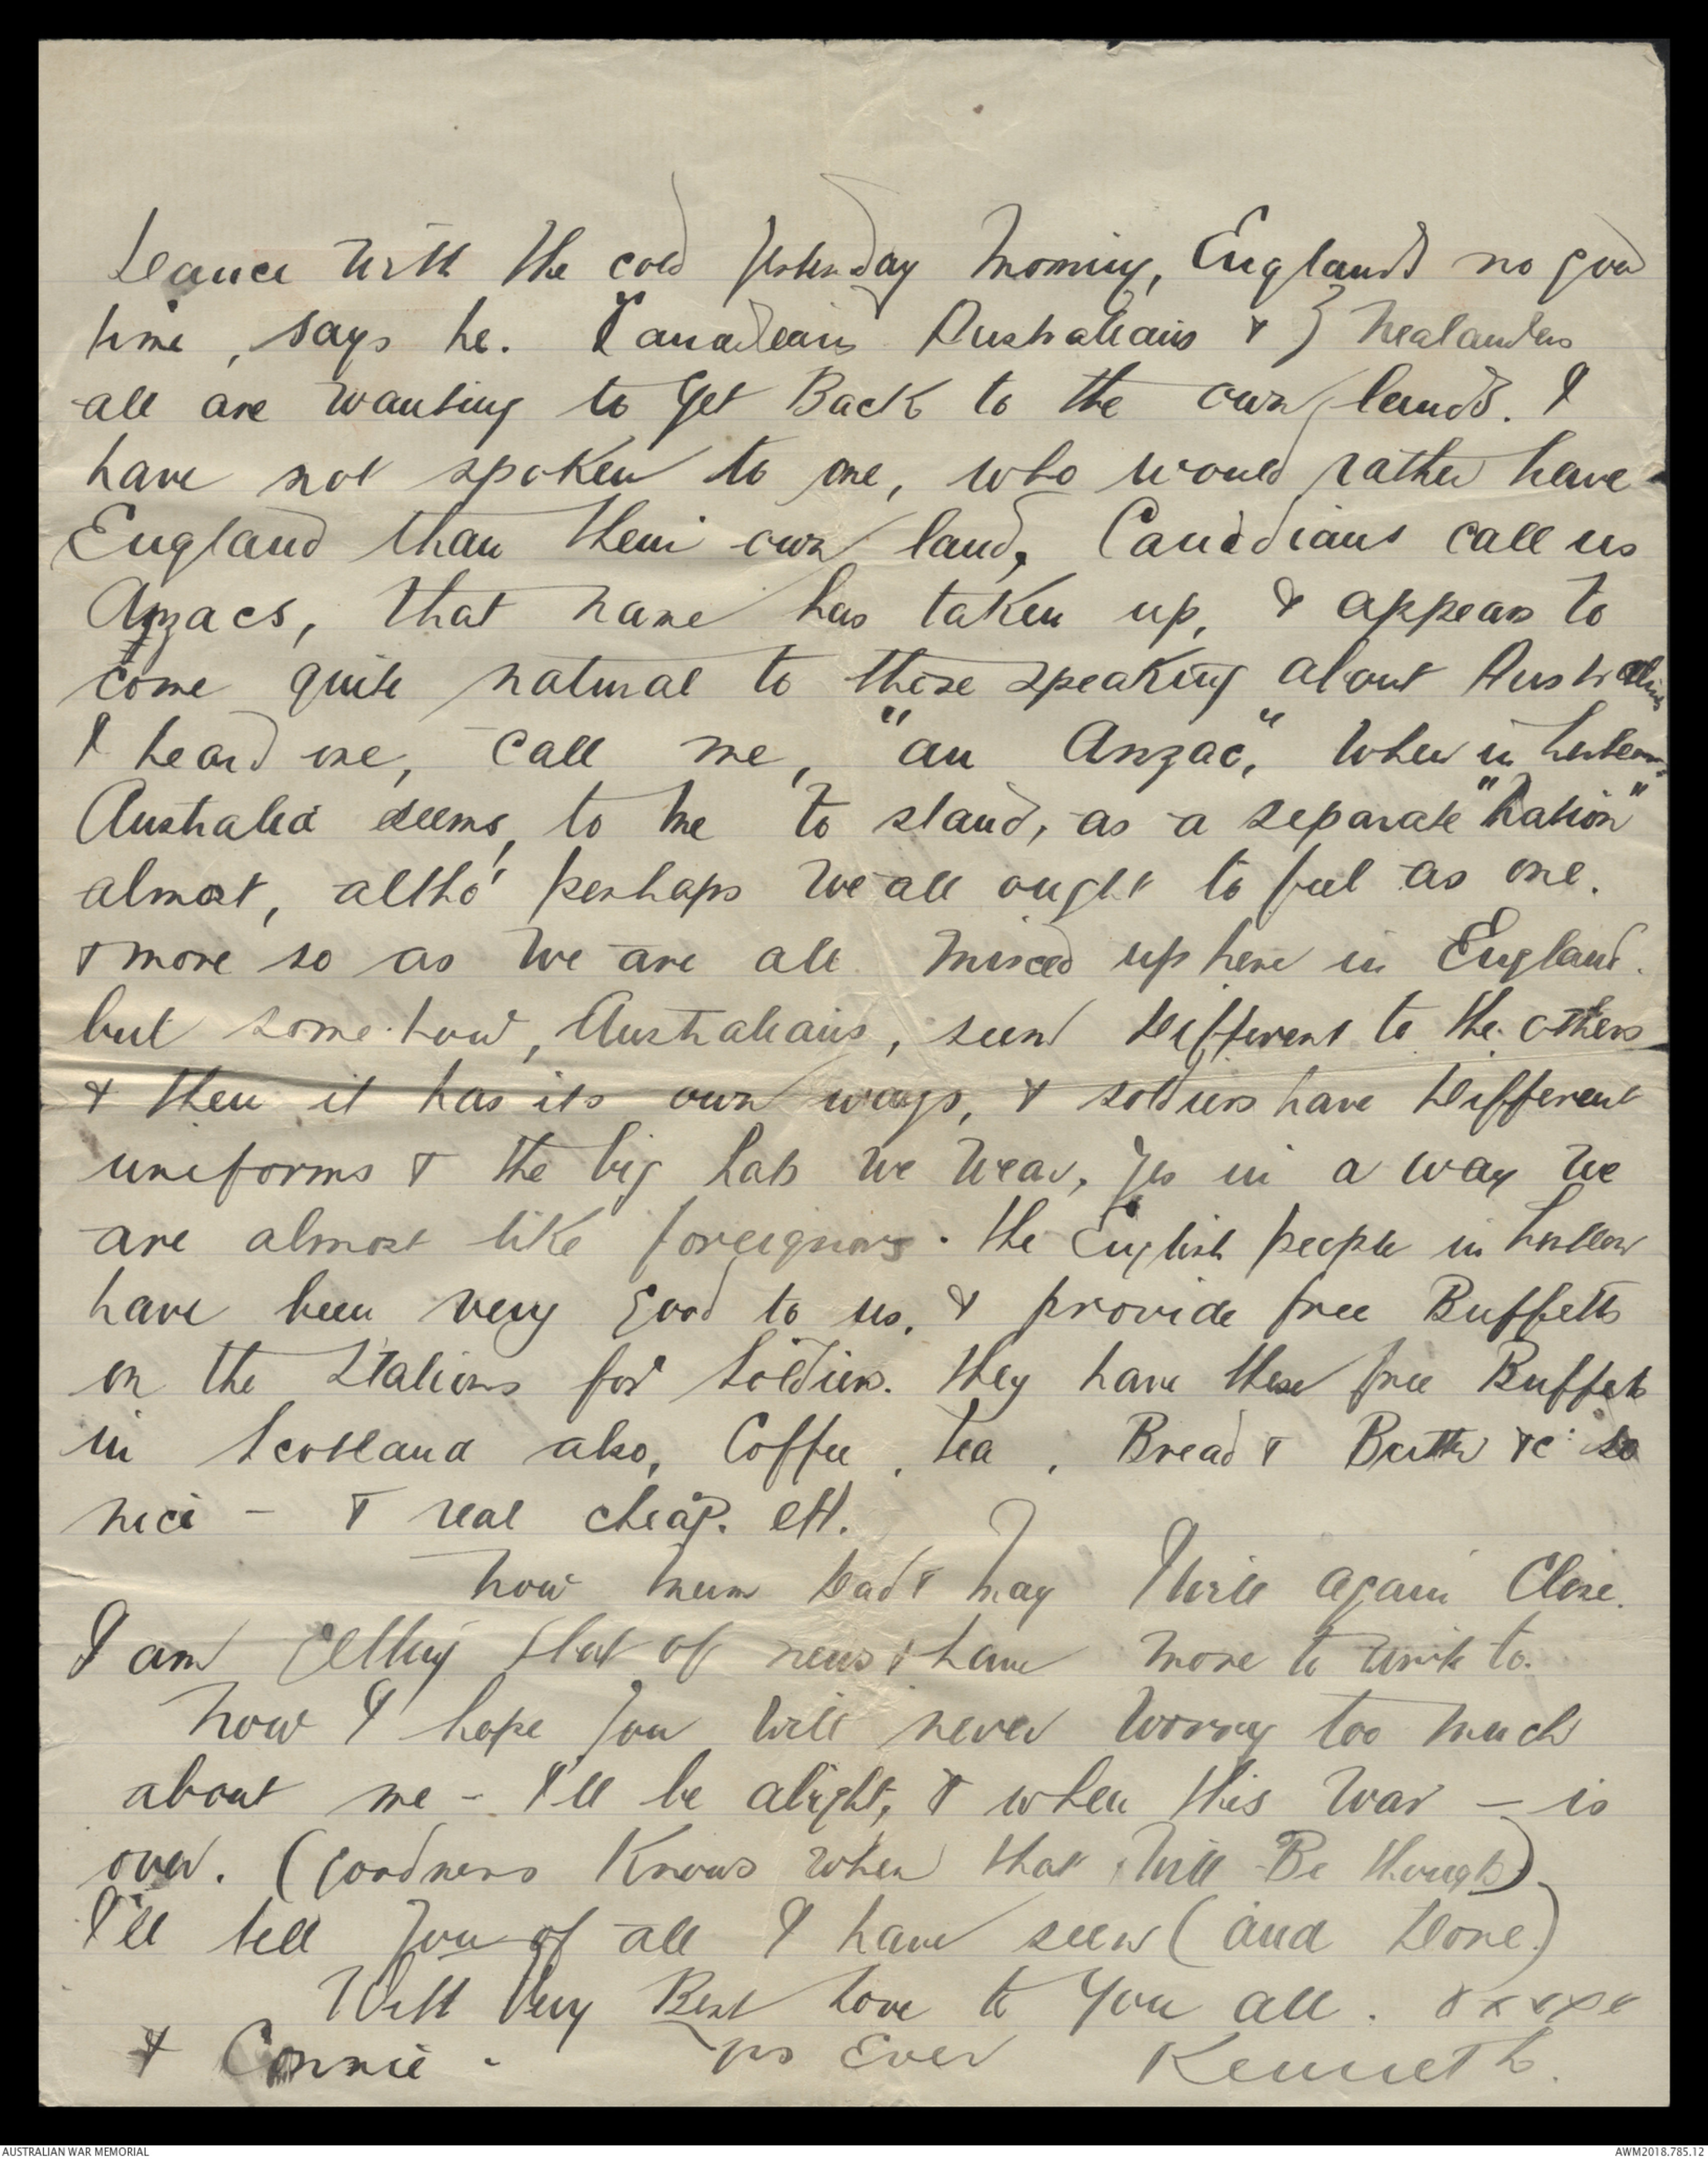 dance with the cold yesterday morning, England's no good
time, says he. Canadeans Australians & Zealanders
all are wanting to get Back to the own lands. I
have not spoken to one, who would rather have
England than their own land, Canadians call us
Anzacs, that name has taken up, & appears to
come quite natural to those speaking about Australians
I heard one, call me, "an Anzac," when in
Australia seems, to me to stand, as a separate "Nation"
almost, altho' perhaps we all ought to feel as one.
& more so as we are all mixed up here in England.
but some-how, Australians, seem different to the others
& then it has its own ways, & soldiers have different
uniforms & the big hats we wear, yes in a way we
are almost like foreignors. the English people in London
have been very good to us, & provide free Buffetts
on the Stations for Soldiers. they have these free Buffets
in Scotland also, Coffee, tea, Bread & Butter &c: so
nice - & real cheap. ett.
Now Mum Dad & May I will again Close.
I am getting short of news & have more to write to.
Now I hope you will never worry too much
about me - I'll be alright, & when this war - is
over. (goodness Knows when that will Be though)
I'll tell you of all I have seen (and done.)
With Very Best love to You all. xxxxx
& Connie - as Ever Kenneth.
AUSTRALIAN WAR MEMORIAL
AWM2018.785.12